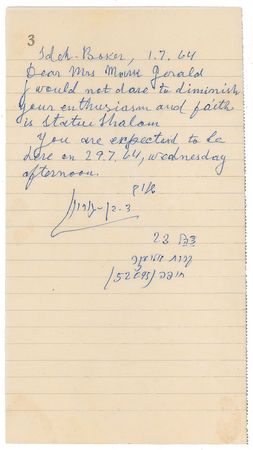 3
Sdeh-Boker, 1.7.64
Dear Mrs Jerald
I would not dare to diminish
your enthusiasm and faith
is Statue Shalom
You are expected to be
here on 29.7.64, wednesday
afternoon.
ד. בן-גוריון
קרית
חיפה